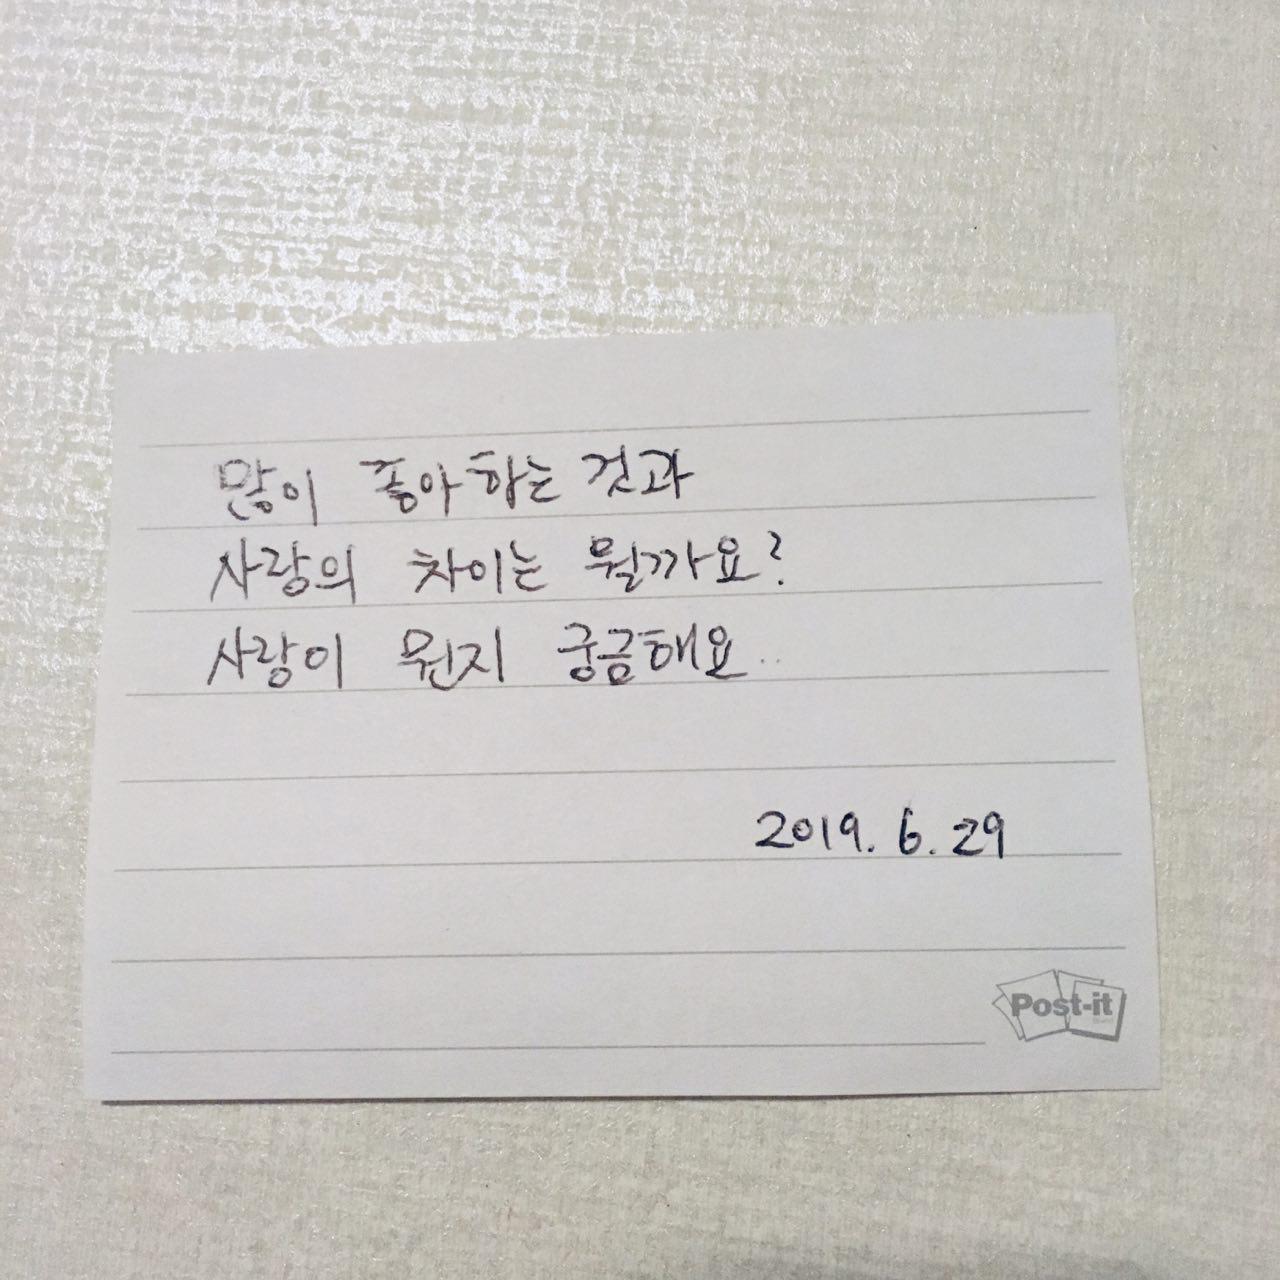 많이 좋아하는 것과
사랑의 차이는 뭘까요?
사랑이 뭔지 궁금해요..
2019. 6. 29
Post-it